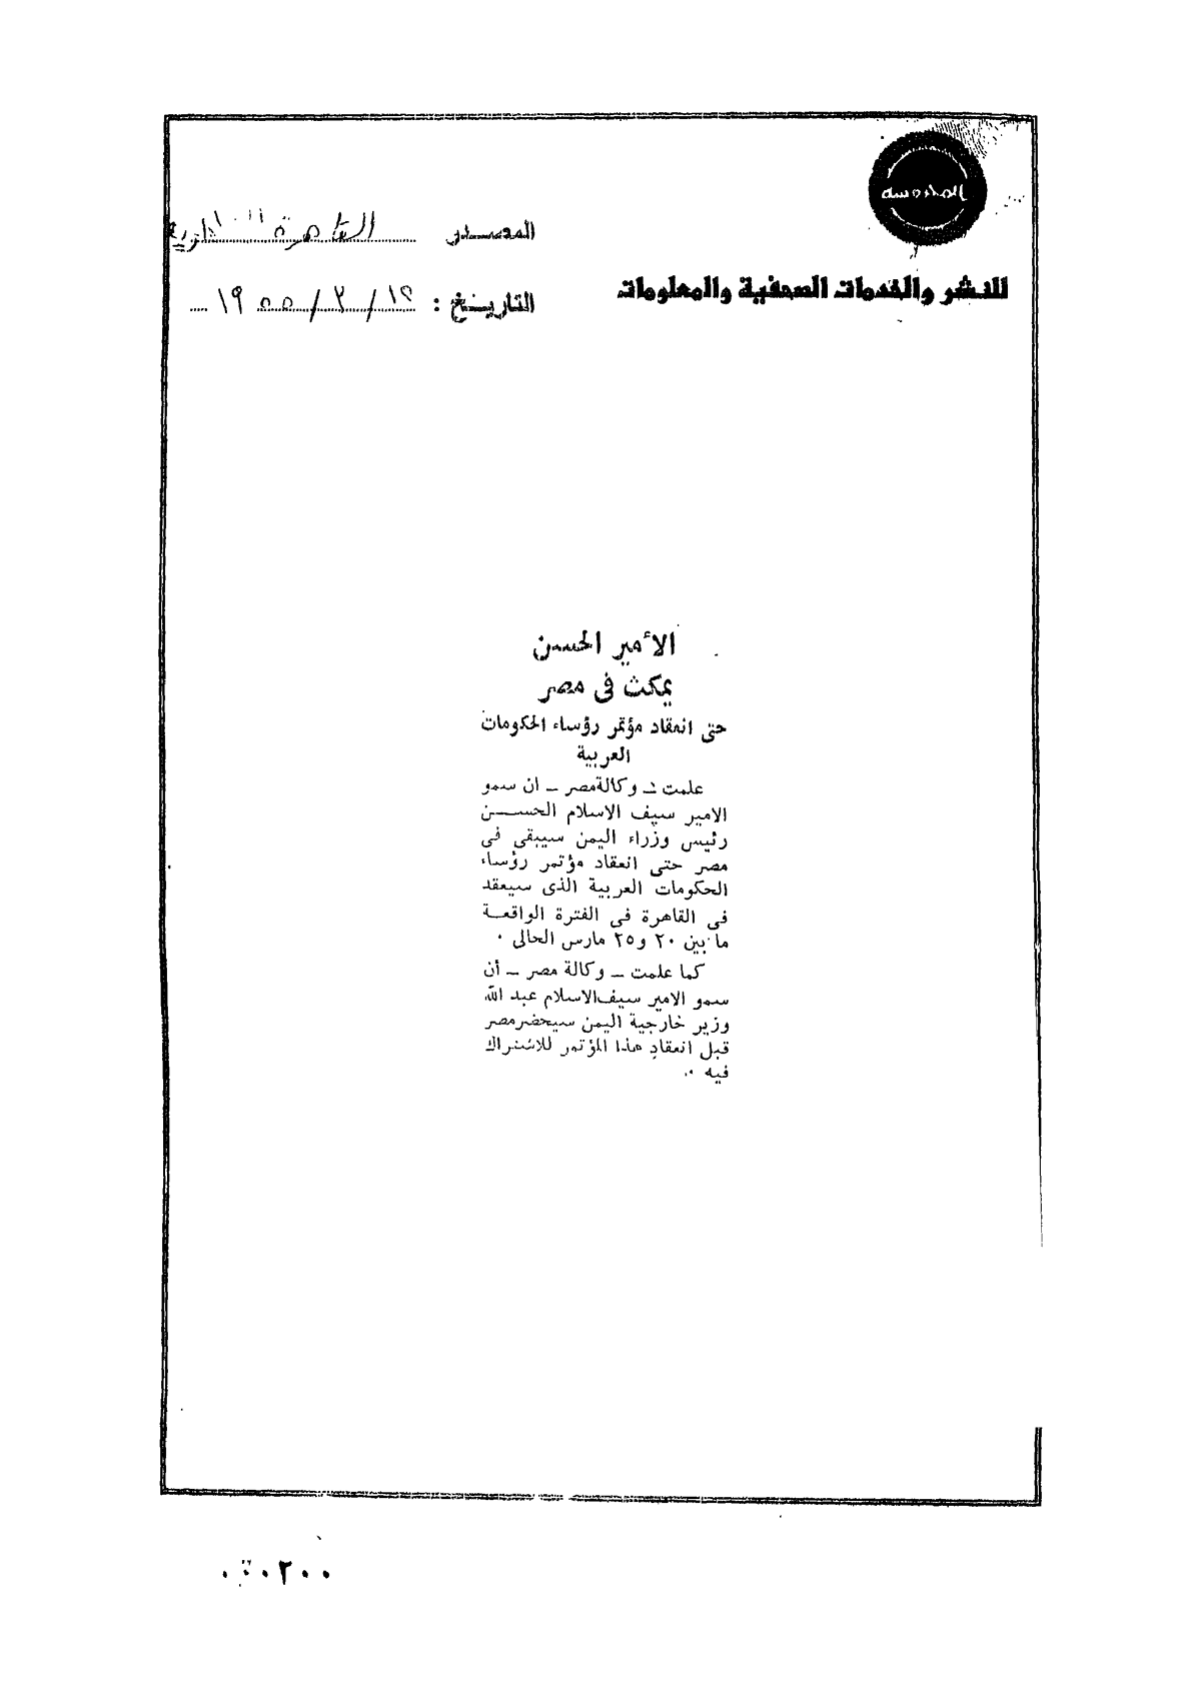 المحروسة
للنشر والخدمات الصحفية والمعلومات
المصدر القاهرة
التاريخ : ١٢ / ٣ / ١٩٥٥
الأمير الحسن
يمكث فى مصر
حتى انعقاد مؤتمر رؤساء الحكومات
العربية
علمت ـ وكالة مصر ـ ان سمو
الامير سيف الاسلام الحسن
رئيس وزراء اليمن سيبقى فى
مصر حتى انعقاد مؤتمر رؤساء
الحكومات العربية الذى سيعقد
فى القاهرة فى الفترة الواقعة
ما بين ٢٠ و٢٥ مارس الحالى ٠
كما علمت ـ وكالة مصر ـ أن
سمو الامير سيف الاسلام عبد الله
وزير خارجية اليمن سيحضر مصر
قبل انعقاد هذا المؤتمر للاشتراك
فيه ٠